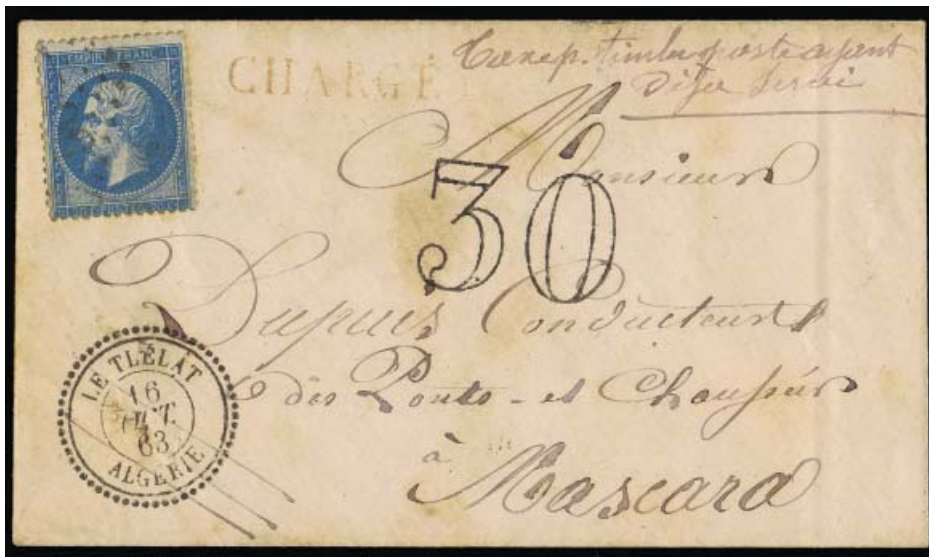 EMPIRE FRANC
CHARGÉ
Taxe p. timbre poste ayant
déja servi
30
Monsieur
Dupuis Conducteur
des Ponts-et Chaussées
à
Mascara
LE TLÉLAT
16
OCT.
63
ALGÉRIE